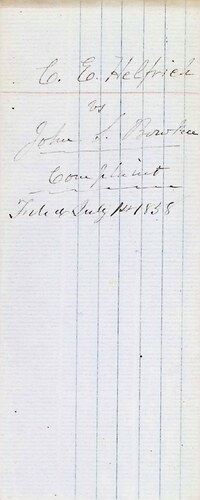 C. E. Helfrich
vs
John S. Bowker
Complaint
Filed July 1st 1858